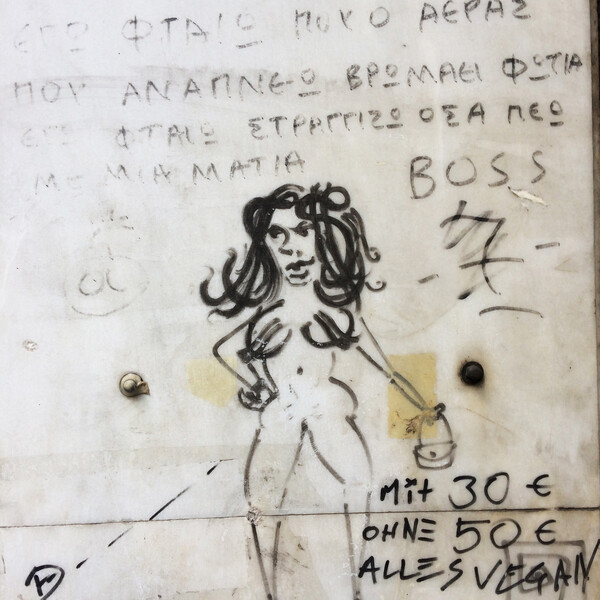 ΕΓΩ ΦΤΑΙΩ ΠΟΥ Ο ΑΕΡΑΣ
ΠΟΥ ΑΝΑΠΝΕΩ ΒΡΩΜΑΕΙ ΦΩΤΙΑ
ΕΓΩ ΦΤΑΙΩ ΣΤΡΑΓΓΙΖΩ ΟΣΑ ΠΕΩ
ΜΕ ΜΙΑ ΜΑΤΙΑ
BOSS
MIT 30 €
OHNE 50 €
ALLES VEGAN